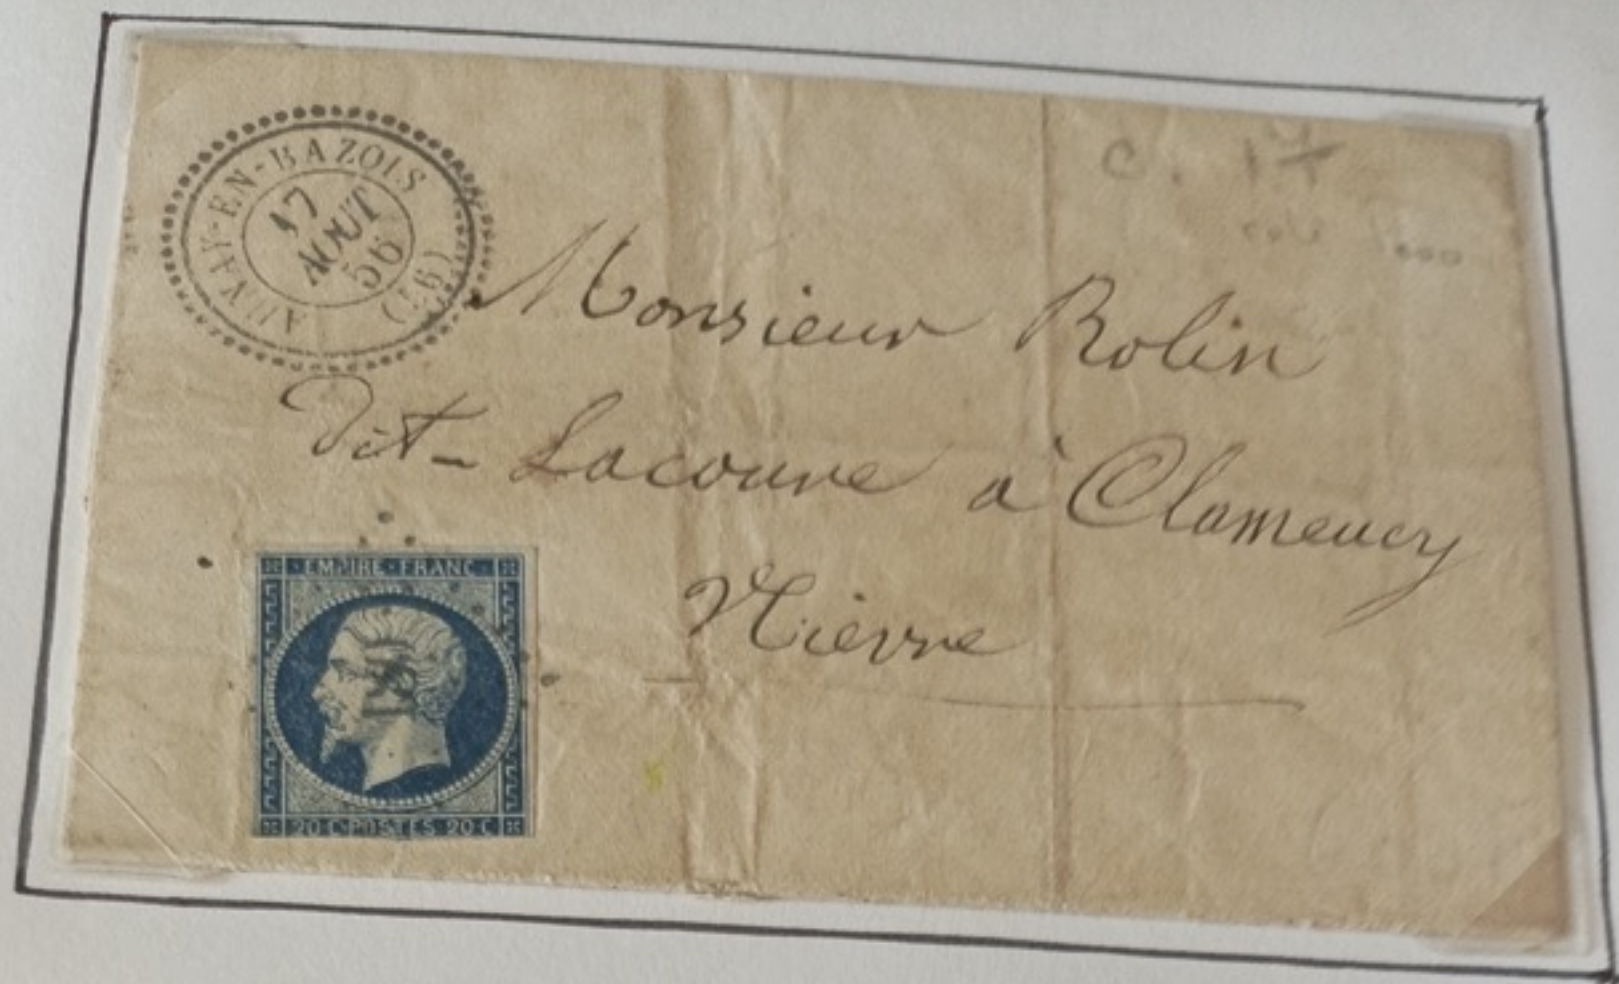 AUNY-EN-BAZOIS
17
AOUT
56
(56)
C. 1
Monsieur Rolin
Dit- Lacoure à Clamency
Nièvre
EMPIRE·FRANC·
20·C·POSTES·20·C